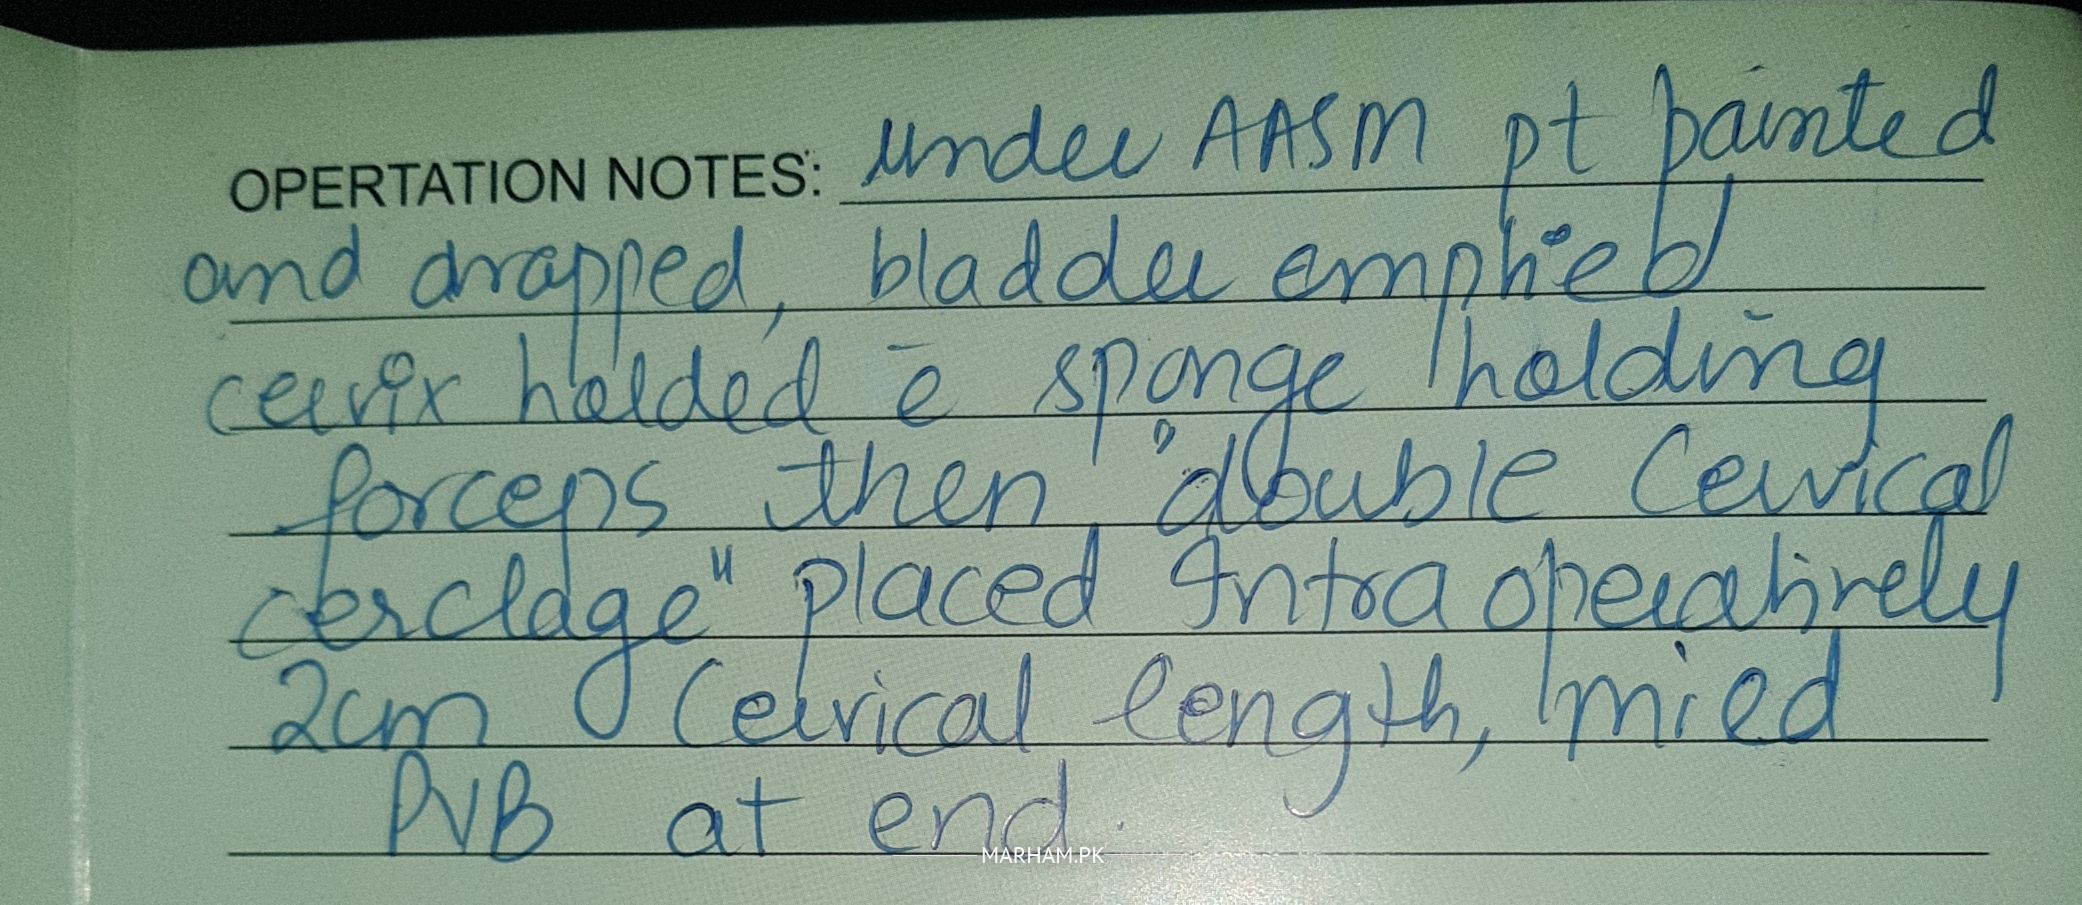 OPERTATION NOTES: under AASM pt painted
and drapped, bladder emptied
cervix holded c̄ sponge holding
forceps then "double Cervical
cerclage" placed Intra operatively
2cm Cervical length, mied
PVB at end.
MARHAM.PK